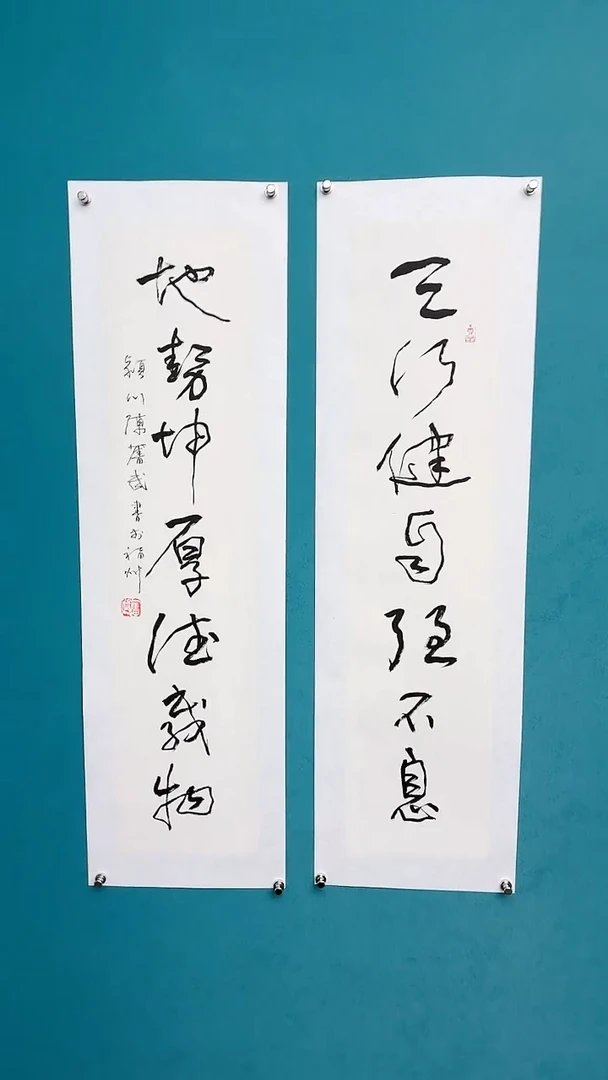 天行健自强不息
地势坤厚德载物
颖川陈旧武书于福州